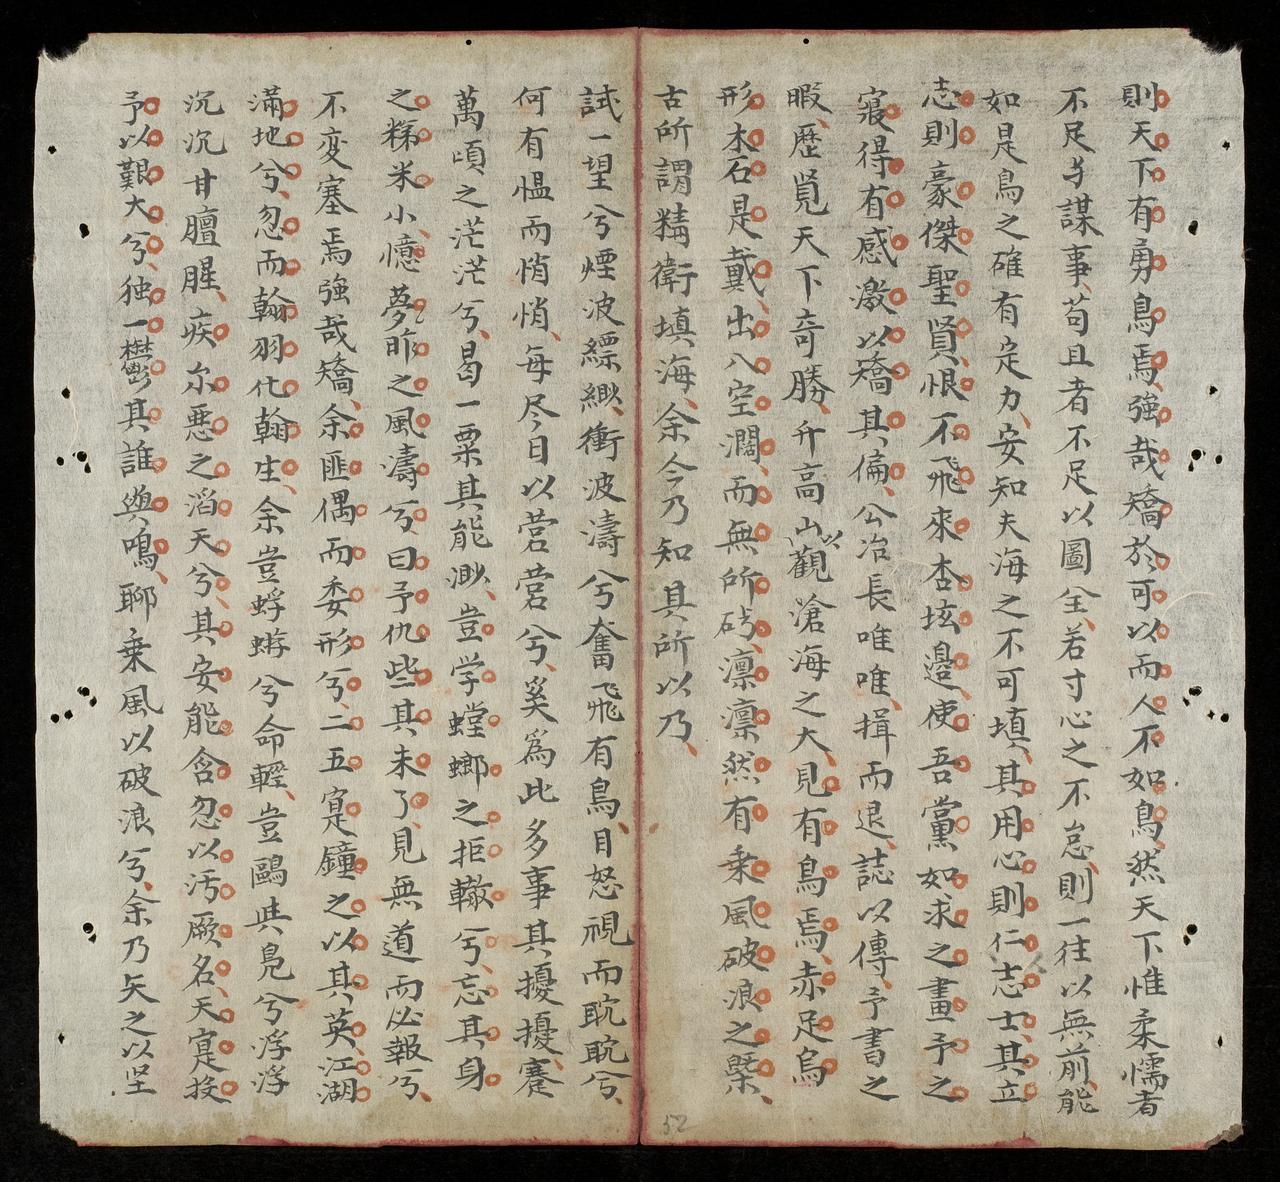 則天下有勇鳥焉強哉矯於可以而人不如鳥然天下惟柔懦者
不足与謀事苟且者不足以圖全若寸心之不怠則一往以無前能
如是鳥之確有定力安知夫海之不可填其用心則仁志士其立
志則豪傑聖賢恨不飛來杏垓邊使吾黨如求之畫予之
寢得有感激以矯其偏公冶長唯唯揖而退誌以傳予書之
暇歷覧天下奇勝升高山以觀滄海之大見有鳥焉赤足烏
形木石是戴出入空濶而無所礙凛凛然有乗風破浪之槩
古所謂精衛填海余今乃知其所以乃
試一望兮煙波縹緲衝波濤兮奮飛有鳥目怒視而眈眈兮
何有慍而悄悄每尽日以营营兮奚為此多事其擾擾蹇
萬頃之茫茫兮曷一粟其能渺豈学螳螂之拒轍兮忘其身
之稊米小憶夢昨之風濤兮曰予仇些其未了見無道而必報兮
不変塞焉強哉矯余匪偶而委形兮二五寔鐘之以其英江湖
滿地兮忽而翰羽化翰生余豈蜉蝣兮命輕豈鷗与鳧兮浮浮
沉沉甘膻腥疾尓悪之滔天兮其安能含忍以汚厥名天寔投
予以艱大兮独一鬱其誰與鳴聊乗風以破浪兮余乃矢之以坚
52